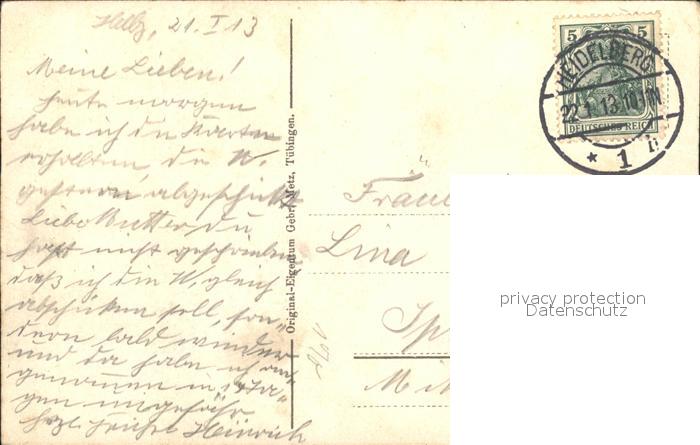 Hdbg, 21. I 13
Meine Lieben!
heute morgen
habe ich die Karten
erhalten, die W.
gestern abgeschickt
Liebe Mutter, du
hast nicht geschrieben
daß ich die W. gleich
abschicken soll, son-
dern bald wieder
und da habe ich an-
genommen in 14 Ta-
gen ungefähr
hzl. Heinrich
Original-Eigentum Gebr. Metz, Tübingen.
5 5
DEUTSCHES REICH
HEIDELBERG
22.1.13.10-11
* 1 h
Fräul
Lina
Sp
Mi
privacy protection
Datenschutz